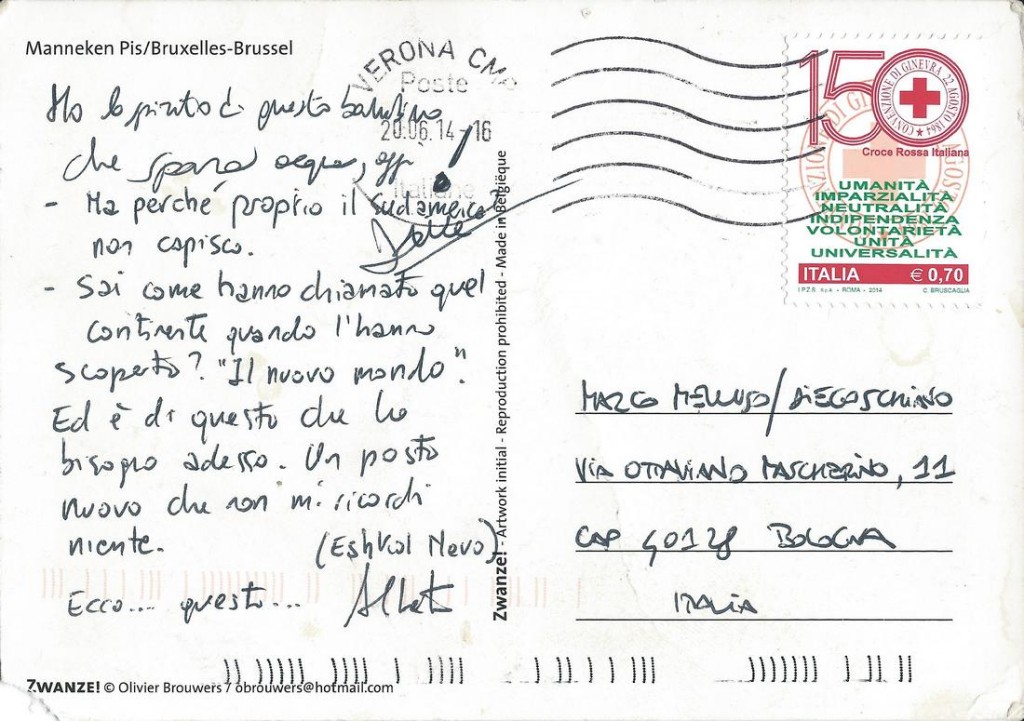 Manneken Pis/Bruxelles-Brussel
Ho lo di questo
che acqua,
- Ma perché proprio il sudamerica
non capisco.
- Sai come hanno chiamato quel
continente quando l'hanno
scoperto? "Il nuovo mondo".
Ed è di questo che ho
bisogno adesso. Un posto
nuovo che non mi ricordi
niente.
(Eshkol Nevo)
Ecco.... questo...
VERONA CMP
Poste
20.06.14-16
Italiane
Zwanze! - Artwork initial - Reproduction prohibited - Made in Belgiëque
150
CONVENZIONE DI GINEVRA 22 AGOSTO 1864
Croce Rossa Italiana
UMANITÀ
IMPARZIALITÀ
NEUTRALITÀ
INDIPENDENZA
VOLONTARIETÀ
UNITÀ
UNIVERSALITÀ
ITALIA € 0,70
I.P.Z.S. S.p.A. - ROMA - 2014 C. BRUSCAGLIA
MARCO MELLUSO/DIEGO SCHIAVO
VIA OTTAVIANO MASCHERINO, 11
CAP 40128 BOLOGNA
ITALIA
ZWANZE! © Olivier Brouwers / obrouwers@hotmail.com